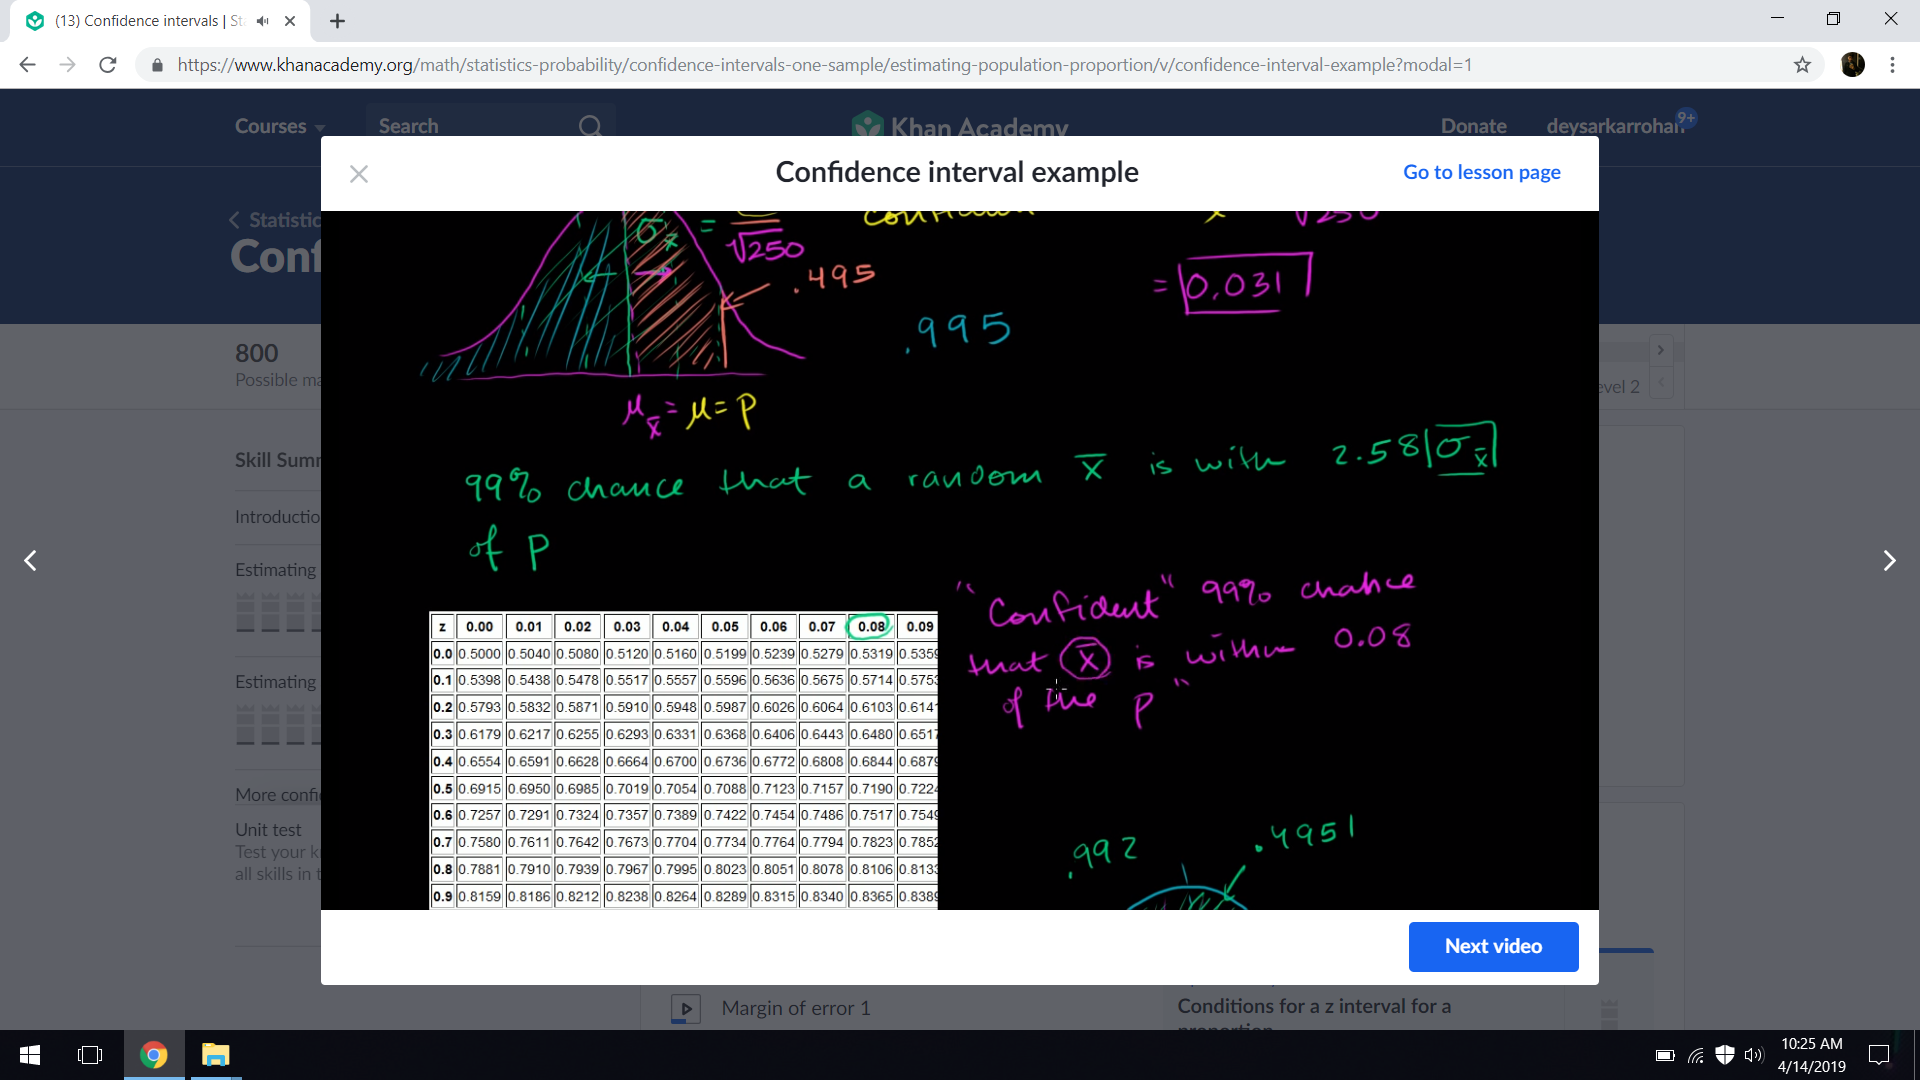 (13) Confidence intervals | St
https://www.khanacademy.org/math/statistics-probability/confidence-intervals-one-sample/estimating-population-proportion/v/confidence-interval-example?modal=1
Courses
Search
Khan Academy
Donate
deysarkarrohan
9+
Statistic
Conf
Confidence interval example
Go to lesson page
800
Possible ma
evel 2
Skill Summ
Introductio
Estimating
Estimating
More confi
Unit test
Test your k
all skills in t
σx̄ =
√250
.495
√250
= 0.031
.995
μx̄ = μ = p
99% chance that a random x̄ is with 2.58 σx̄
of p
"Confident" 99% chance
that x̄ is within 0.08
of the p"
z 0.00 0.01 0.02 0.03 0.04 0.05 0.06 0.07 0.08 0.09
0.0 0.5000 0.5040 0.5080 0.5120 0.5160 0.5199 0.5239 0.5279 0.5319 0.5359
0.1 0.5398 0.5438 0.5478 0.5517 0.5557 0.5596 0.5636 0.5675 0.5714 0.5753
0.2 0.5793 0.5832 0.5871 0.5910 0.5948 0.5987 0.6026 0.6064 0.6103 0.6141
0.3 0.6179 0.6217 0.6255 0.6293 0.6331 0.6368 0.6406 0.6443 0.6480 0.6517
0.4 0.6554 0.6591 0.6628 0.6664 0.6700 0.6736 0.6772 0.6808 0.6844 0.6879
0.5 0.6915 0.6950 0.6985 0.7019 0.7054 0.7088 0.7123 0.7157 0.7190 0.7224
0.6 0.7257 0.7291 0.7324 0.7357 0.7389 0.7422 0.7454 0.7486 0.7517 0.7549
0.7 0.7580 0.7611 0.7642 0.7673 0.7704 0.7734 0.7764 0.7794 0.7823 0.7852
0.8 0.7881 0.7910 0.7939 0.7967 0.7995 0.8023 0.8051 0.8078 0.8106 0.8133
0.9 0.8159 0.8186 0.8212 0.8238 0.8264 0.8289 0.8315 0.8340 0.8365 0.8389
.992
.4951
Next video
Margin of error 1
Conditions for a z interval for a
proportion
10:25 AM
4/14/2019